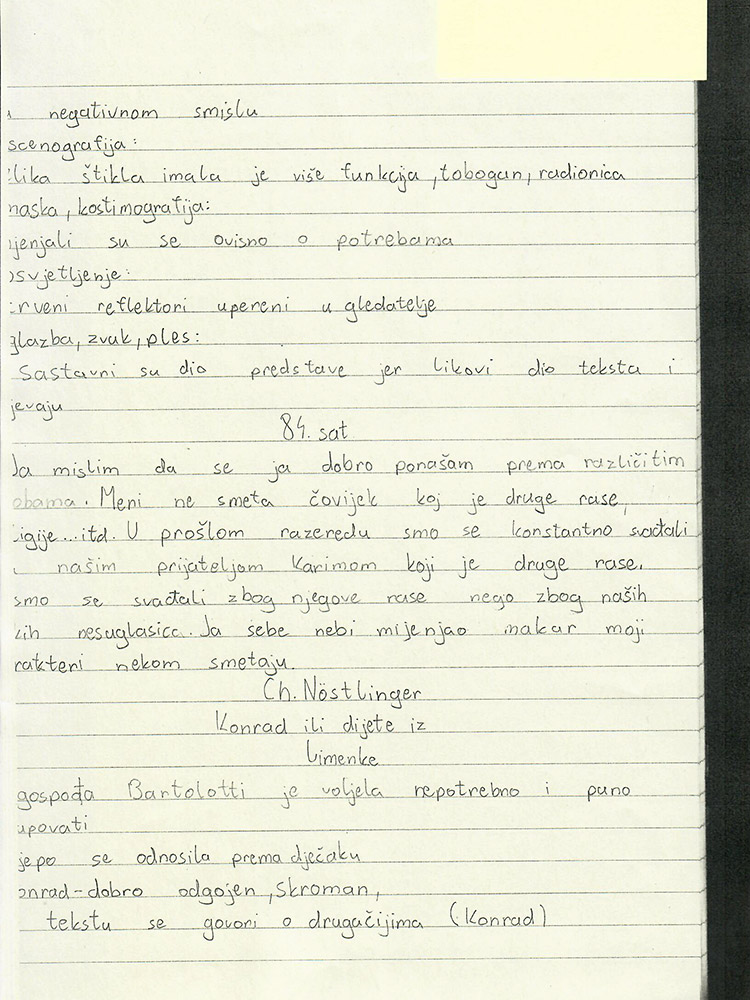 negativnom smislu
scenografija:
lika štikla imala je više funkcija, tobogan, radionica
maska, kostimografija:
jenjali su se ovisno o potrebama
osvjetljenje:
crveni reflektori upereni u gledatelje
glazba, zvuk, ples:
Sastavni su dio predstave jer likovi dio teksta i
jevaju
84. sat
Ja mislim da se ja dobro ponašam prema različitim
obama. Meni ne smeta čovijek koj je druge rase,
igije...itd. U prošlom razeredu smo se konstantno svađali
našim prijateljom Karimom koji je druge rase.
smo se svađali zbog njegove rase nego zbog naših
kih nesuglasica. Ja sebe nebi mijenjao makar moji
rakteri nekom smetaju.
Ch. Nöstlinger
Konrad ili dijete iz
limenke
gospođa Bartolotti je voljela nepotrebno i puno
upovati
jepo se odnosila prema dječaku
onrad-dobro odgojen, skroman,
tekstu se govori o drugačijima (Konrad)